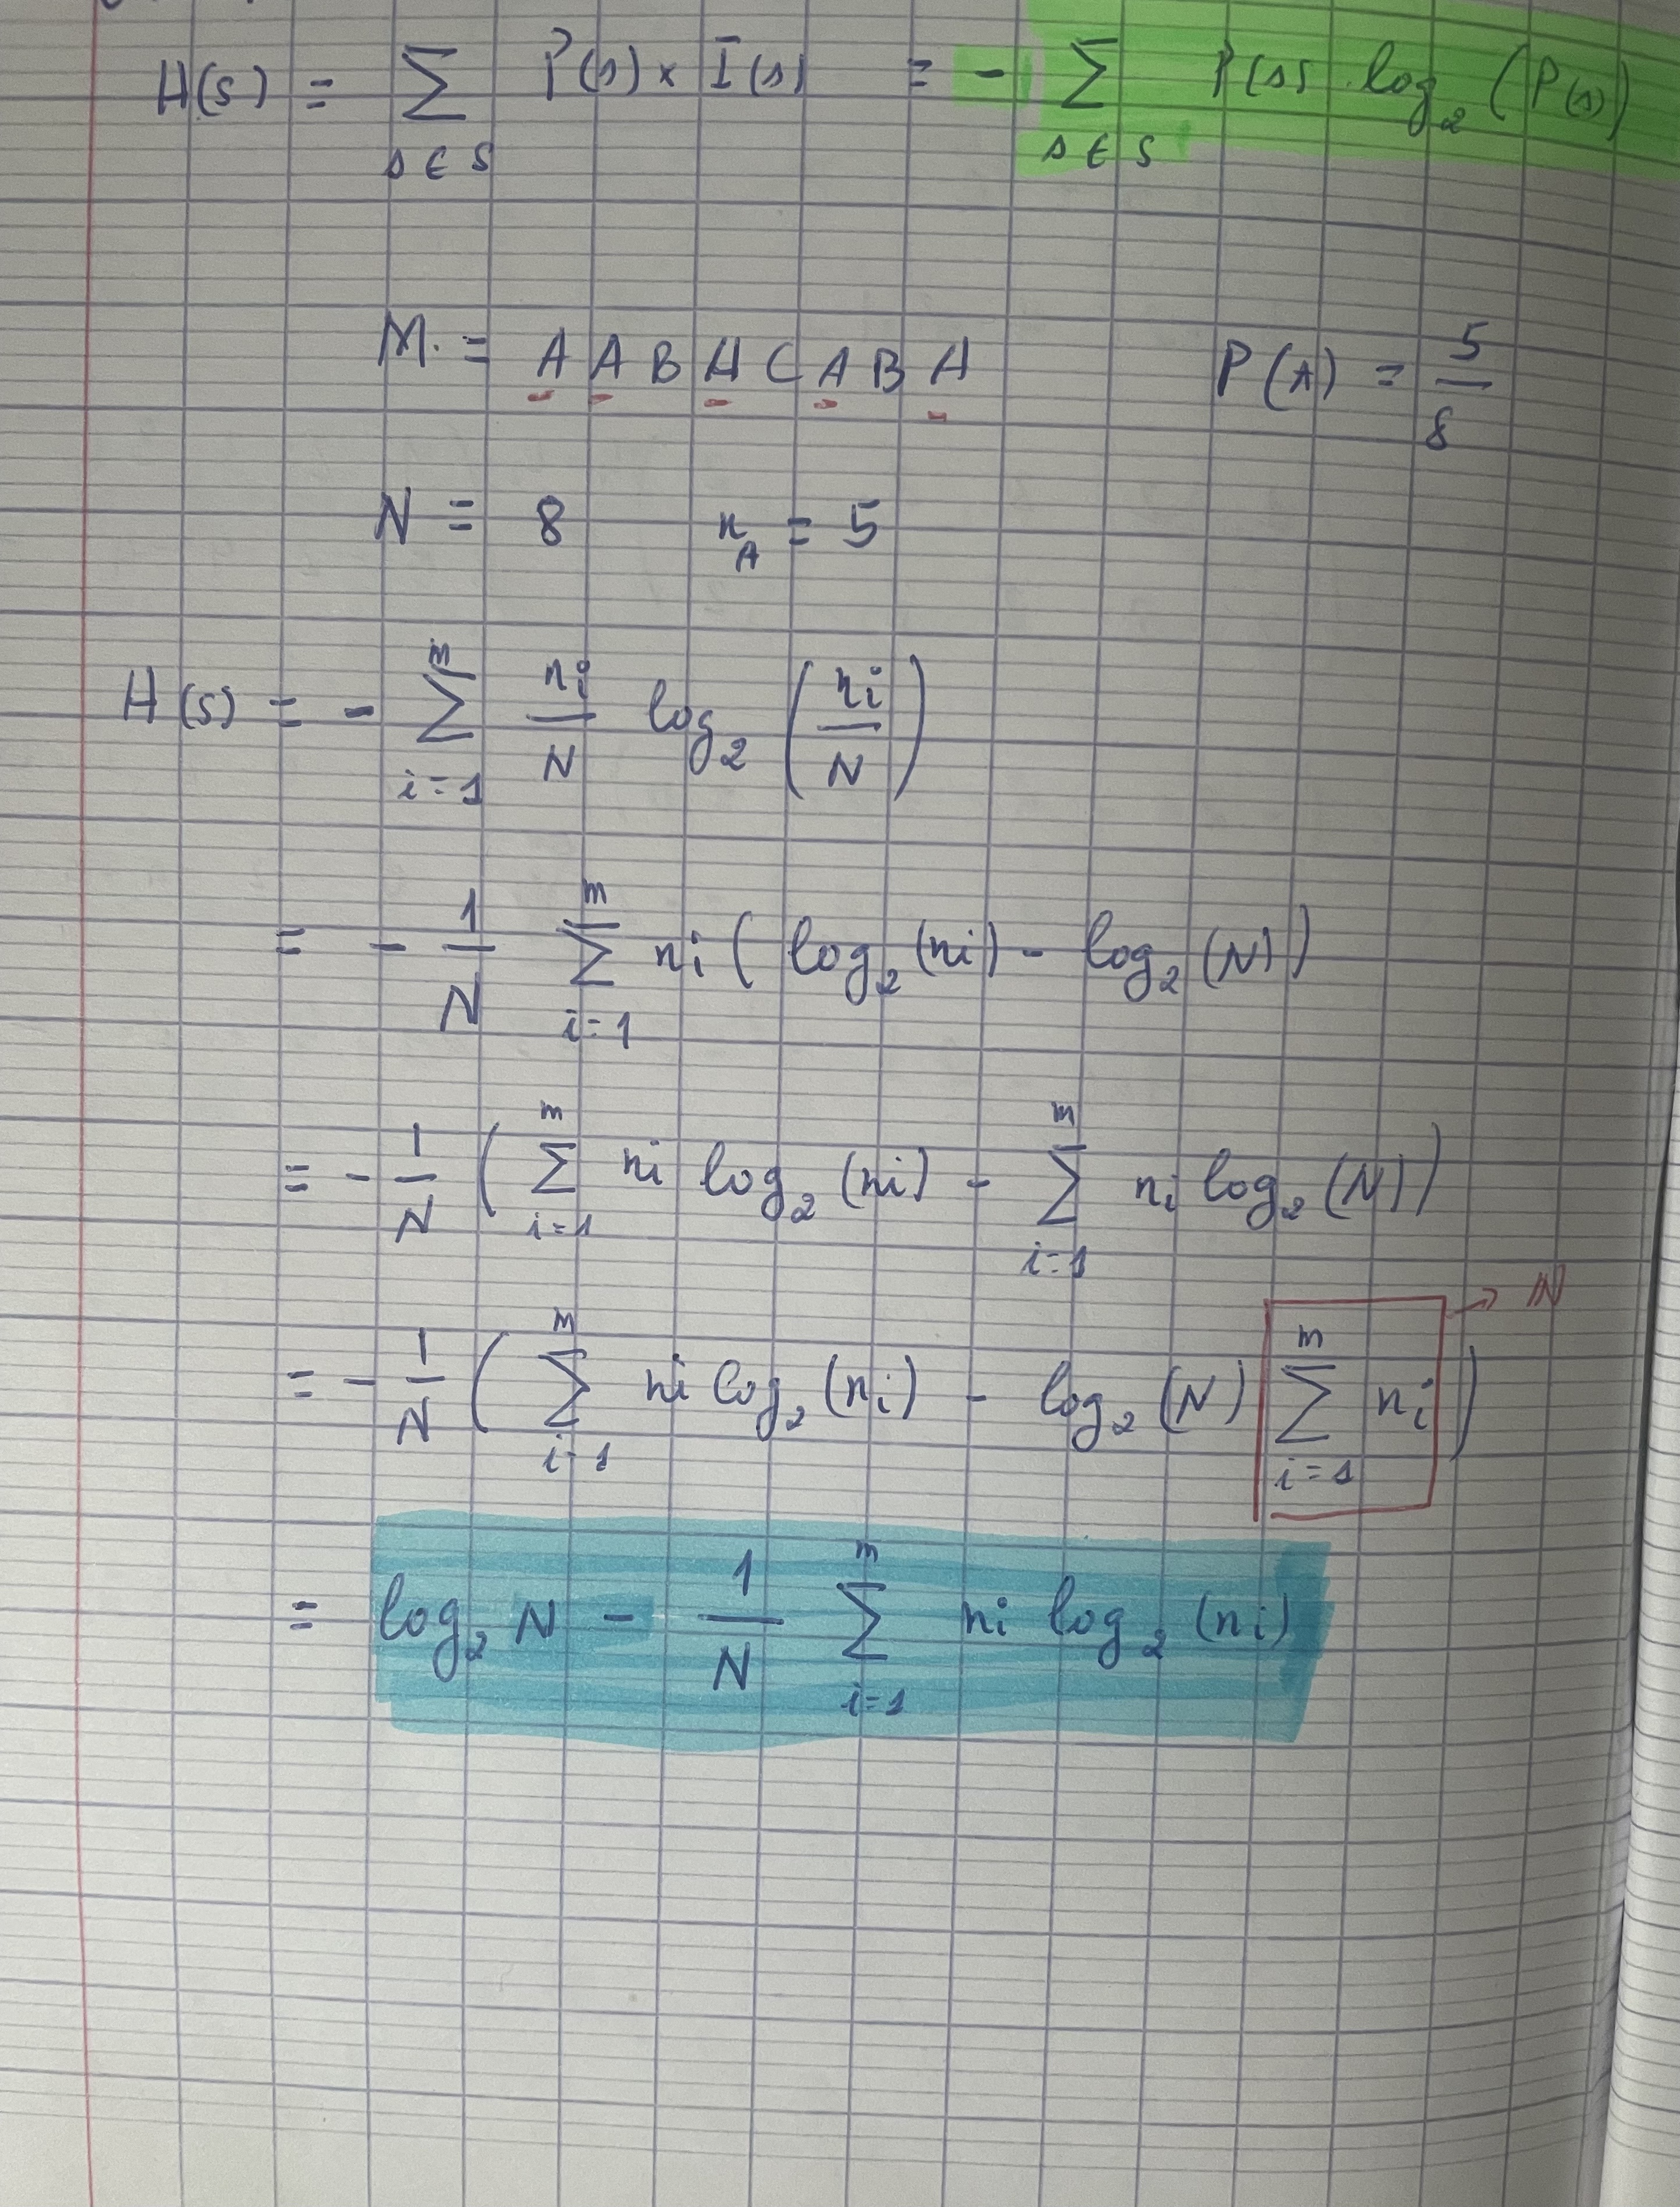 H(s) = ∑_{s ∈ S} P(s) × I(s) = - ∑_{s ∈ S} P(s) . log₂ (P(s))
M = A A B A C A B A P(A) = 5/8
N = 8 n_A = 5
H(s) = - ∑_{i=1}^{m} ni/N log₂ (ni/N)
= - 1/N ∑_{i=1}^{m} ni ( log₂ (ni) - log₂ (N) )
= - 1/N ( ∑_{i=1}^{m} ni log₂ (ni) - ∑_{i=1}^{m} ni log₂ (N) )
= - 1/N ( ∑_{i=1}^{m} ni log₂ (ni) - log₂ (N) ∑_{i=1}^{m} ni ) → N
= log₂ N - 1/N ∑_{i=1}^{m} ni log₂ (ni)